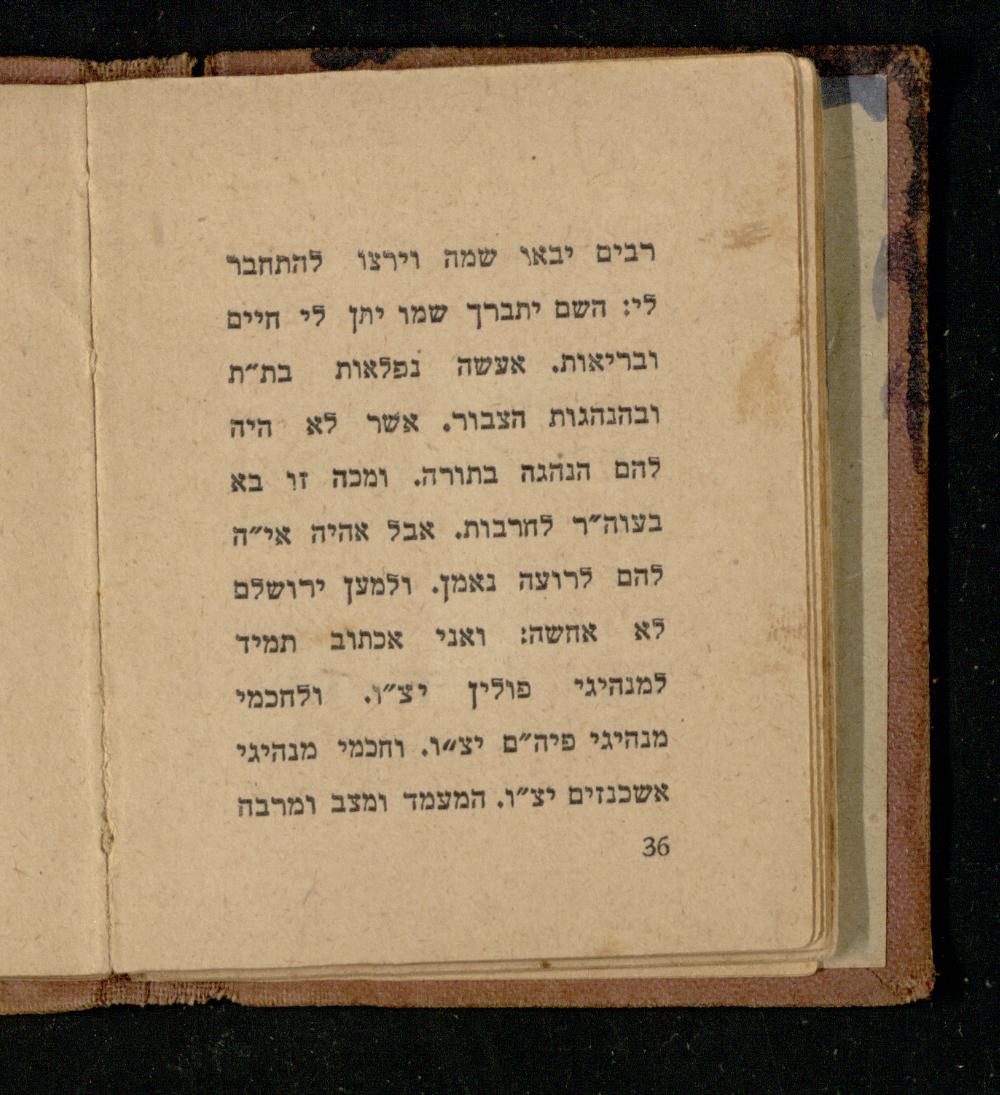 רבים יבאו שמה וירצו להתחבר
לי: השם יתברך שמו יתן לי חיים
ובריאות. אעשה נפלאות בת״ת
ובהנהגות הצבור. אשר לא היה
להם הנהגה בתורה. ומכה זו בא
בעוה״ר לחרבות. אבל אהיה אי״ה
להם לרועה נאמן. ולמען ירושלם
לא אחשה: ואני אכתוב תמיד
למנהיגי פולין יצ״ו. ולחכמי
מנהיגי פיה״ם יצ״ו. וחכמי מנהיגי
אשכנזים יצ״ו. המעמד ומצב ומרבה
36